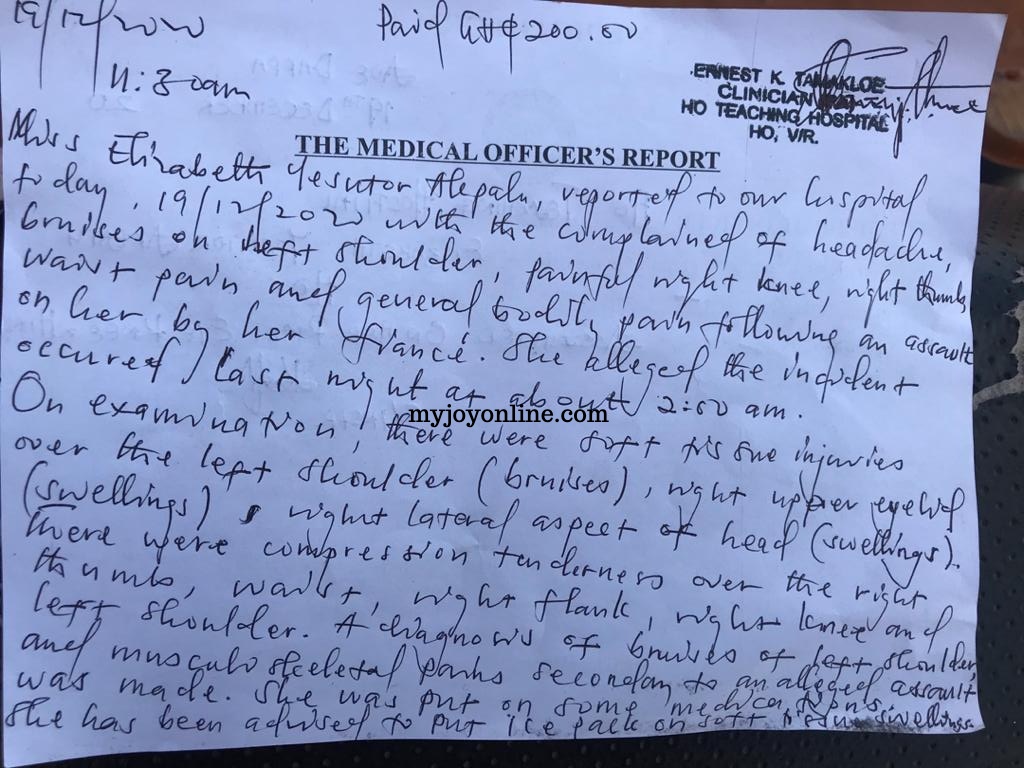 19/12/2020
Paid GH¢200.00
11:30am
ERNEST K. TAMAKLOE
CLINICIAN
HO TEACHING HOSPITAL
HO, V/R.
THE MEDICAL OFFICER'S REPORT
Miss Elizabeth Yesutor, reported to our hospital
today, 19/12/2020 with the complained of headache,
bruises on left shoulder, painful right knee, right thumb,
waist pain and general bodily pain following an assault
on her by her fiancé. She alleged the incident
occured last night at about 2:00 am.
myjoyonline.com
On examination, there were soft tissue injuries
over the left shoulder (bruises), right upper eyelid
(swellings), right lateral aspect of head (swellings).
There were compression tenderness over the right
thumb, waist, right flank, right knee and
left shoulder. A diagnosis of bruises of left shoulder
and musculoskeletal pains seconday to an alleged assault
was made. She was put on some medications.
She has been advised to put ice pack on soft tissue swellings